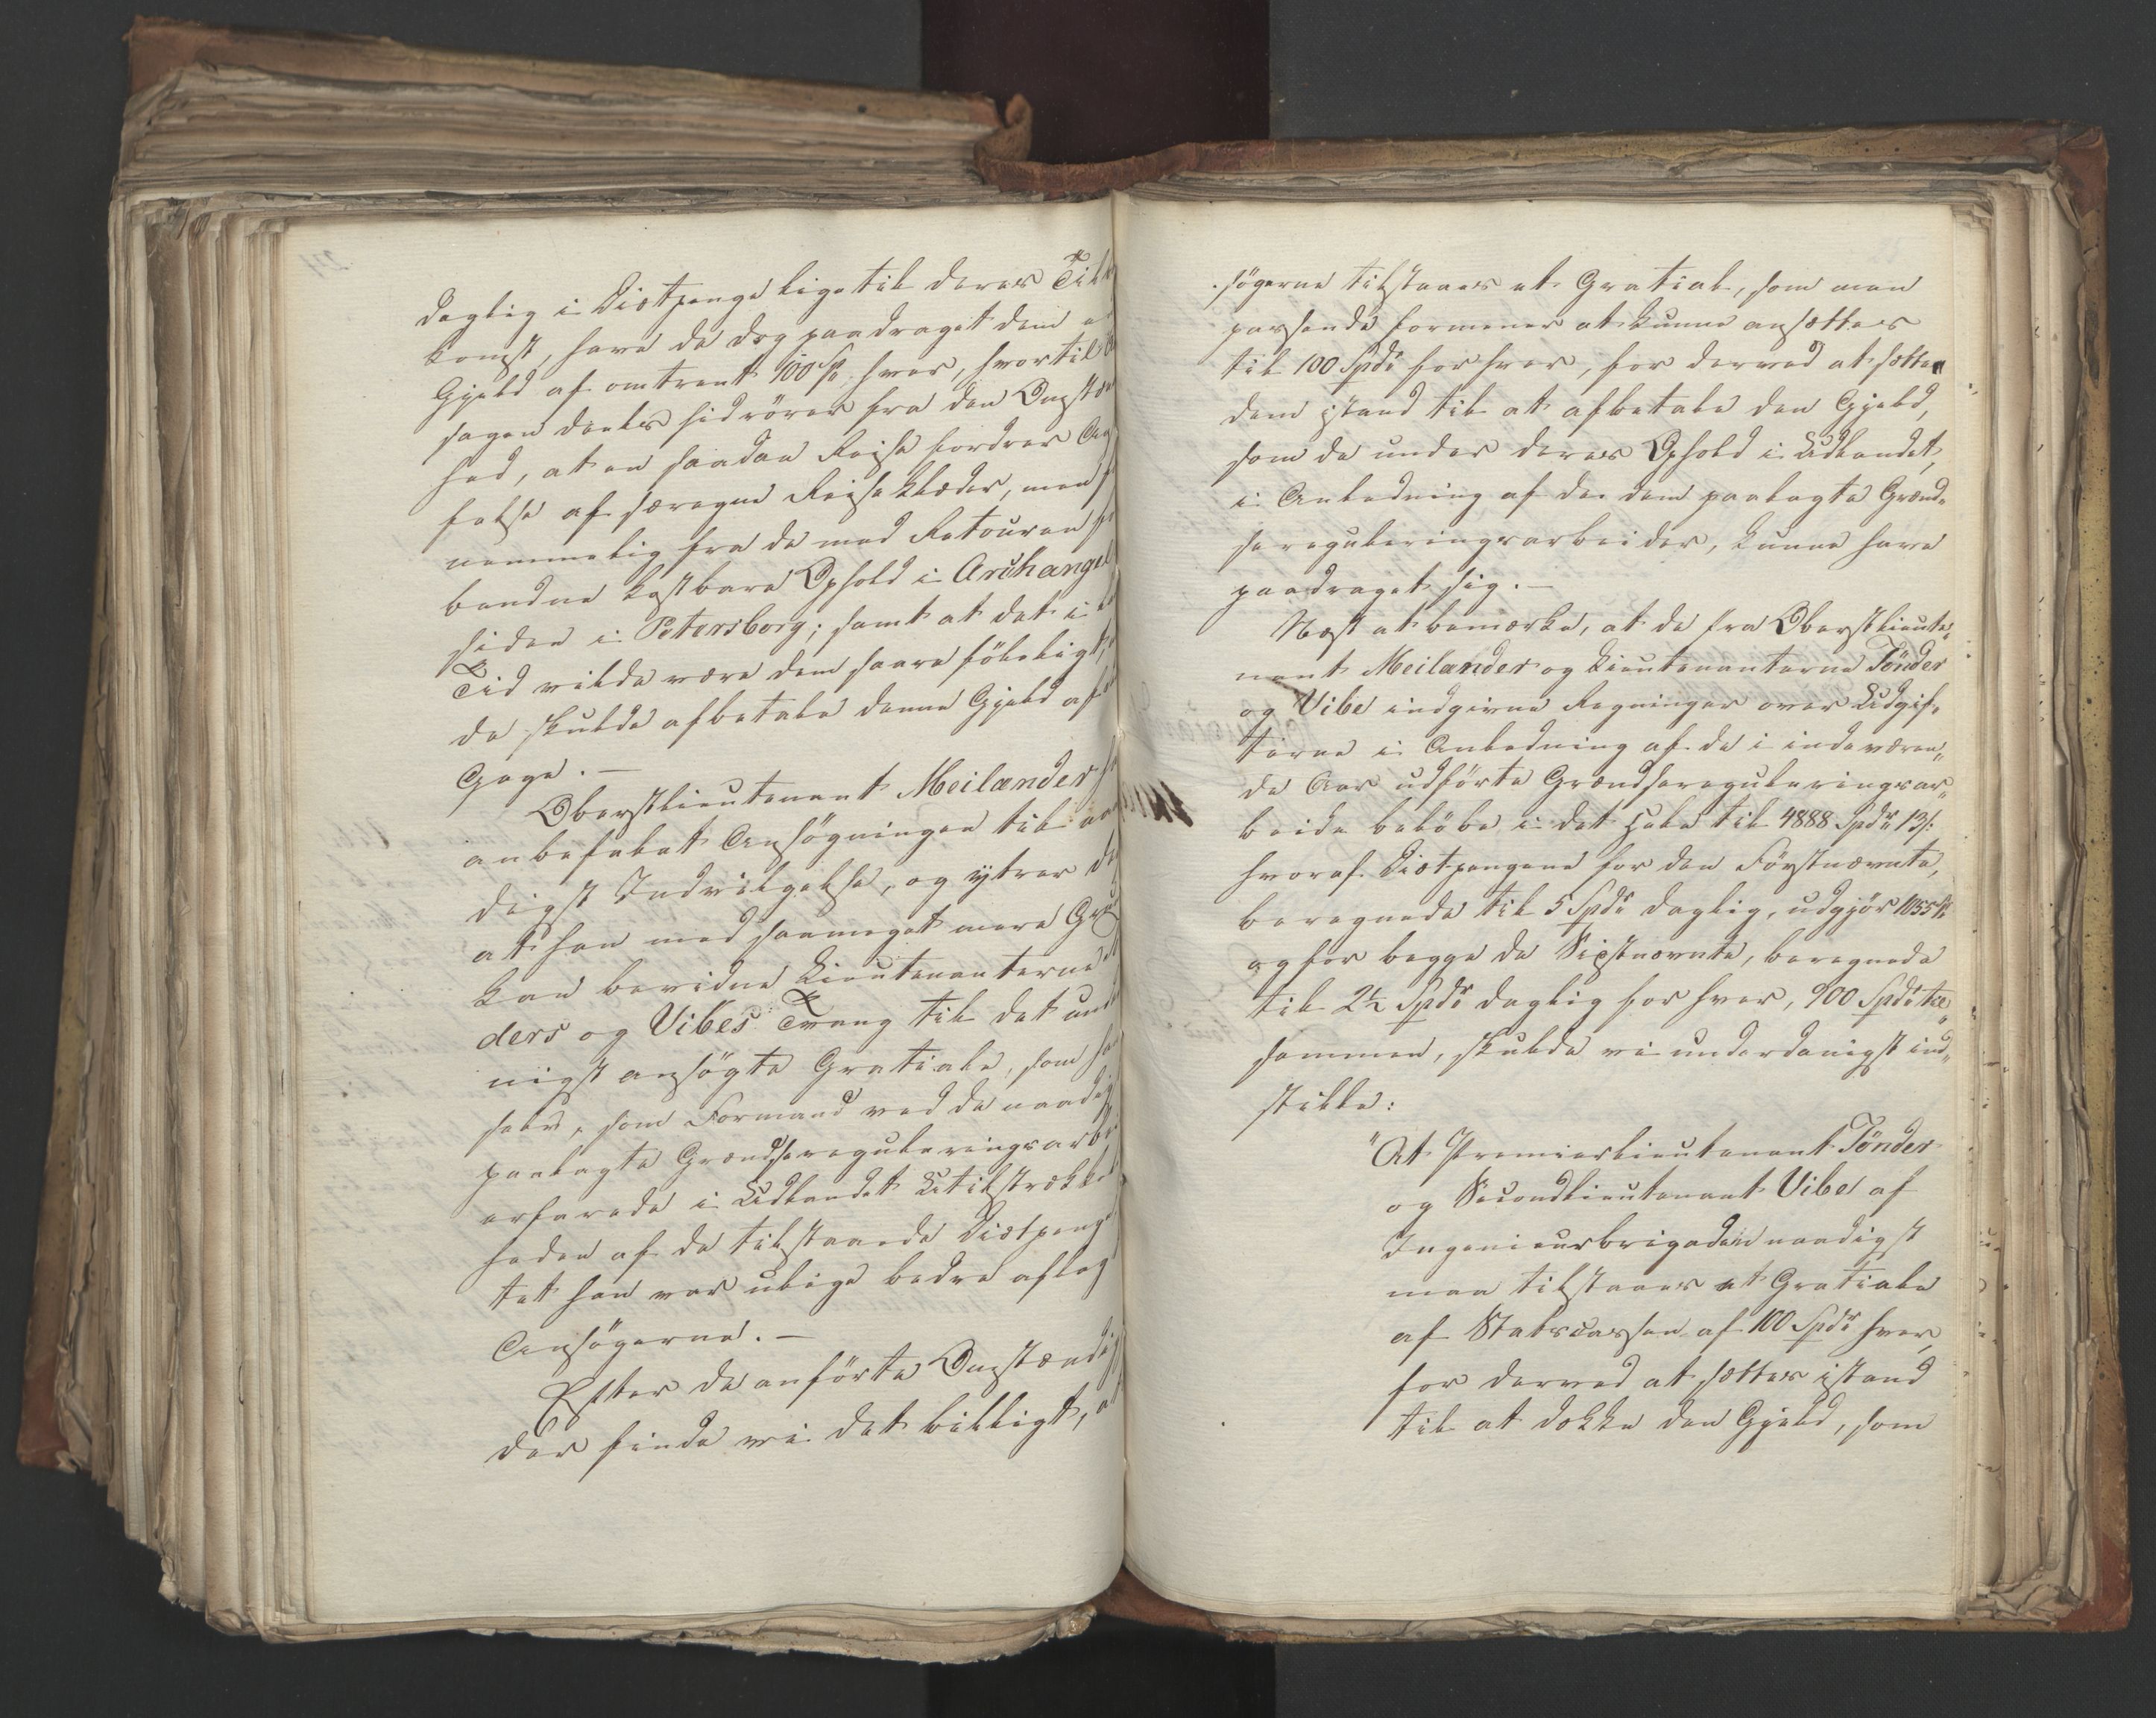 daglig i Diætpenge lige til deres Til
komst, have de dog paadraget dem
Gjeld af omtrent 100 Sp hver, hvortil
sagen deels hidrörer fra den Omstæn
hed, at en saadan Reise fordrer An
felse af særegne Reiseklæder, men
nemmelig fra de med Retouren
bundne kostbare Ophold i Archangel
siden i Petersborg; samt at det i
Tid vilde være dem saare föleligt,
de skulde afbetale denne Gjeld af
Gage. —
Oberstlieutenant Meilænder
anbefalet Ansögningen til
digst Indvilgelse, og ytrer
at han med saameget mere Gr
kan bevidne Lieutenanterne
ders og Vibes Trang til det und
nigst ansögte Gratiale, som
selv, som Formand ved de naadi
paalagte Grændsereguleringsarb
erfarede i Udlandet Utilstrække
heden af de tilstaaede Diætpeng
tet han var ulige bedre aflag
Ansögerne. —
Efter de anförte Omstændig
der finde vi det billigt, at
sögerne tilstaaes et Gratial, som man
passende formener at kunne ansættes
til 100 Spdr for hver, for derved at sætte
dem istand til at afbetale den Gjeld,
som de under deres Ophold i Udlandet,
i Anledning af de dem paalagte Grænd-
sereguleringsarbeider, kunne have
paadraget sig. —
Næst at bemærke, at de fra Oberstlieute-
nant Meilænder og Lieutenanterne Tönder
og Vibe indgivne Regninger over Udgif-
terne i Anledning af de i indeværen-
de Aar udförte Grændsereguleringsar-
beide belöbe i det Hele til 4888 Spdr 13 s:
hvoraf Diætpengene for den Förstnævnte,
beregnede til 5 Spdr daglig, udgjör 1055 Sp
og for begge de Sidstnævnte, beregnede
til 2½ Spdr daglig for hver, 900 Spdr til-
sammen, skulde vi underdanigst ind-
stille:
"At Premierlieutenant Tönder
og Secondlieutenant Vibe af
Ingenieurbrigaden naadigst
maa tilstaaes et Gratiale
af Statscassen af 100 Spdr hver,
for derved at sættes istand
til at dække den Gjeld, som